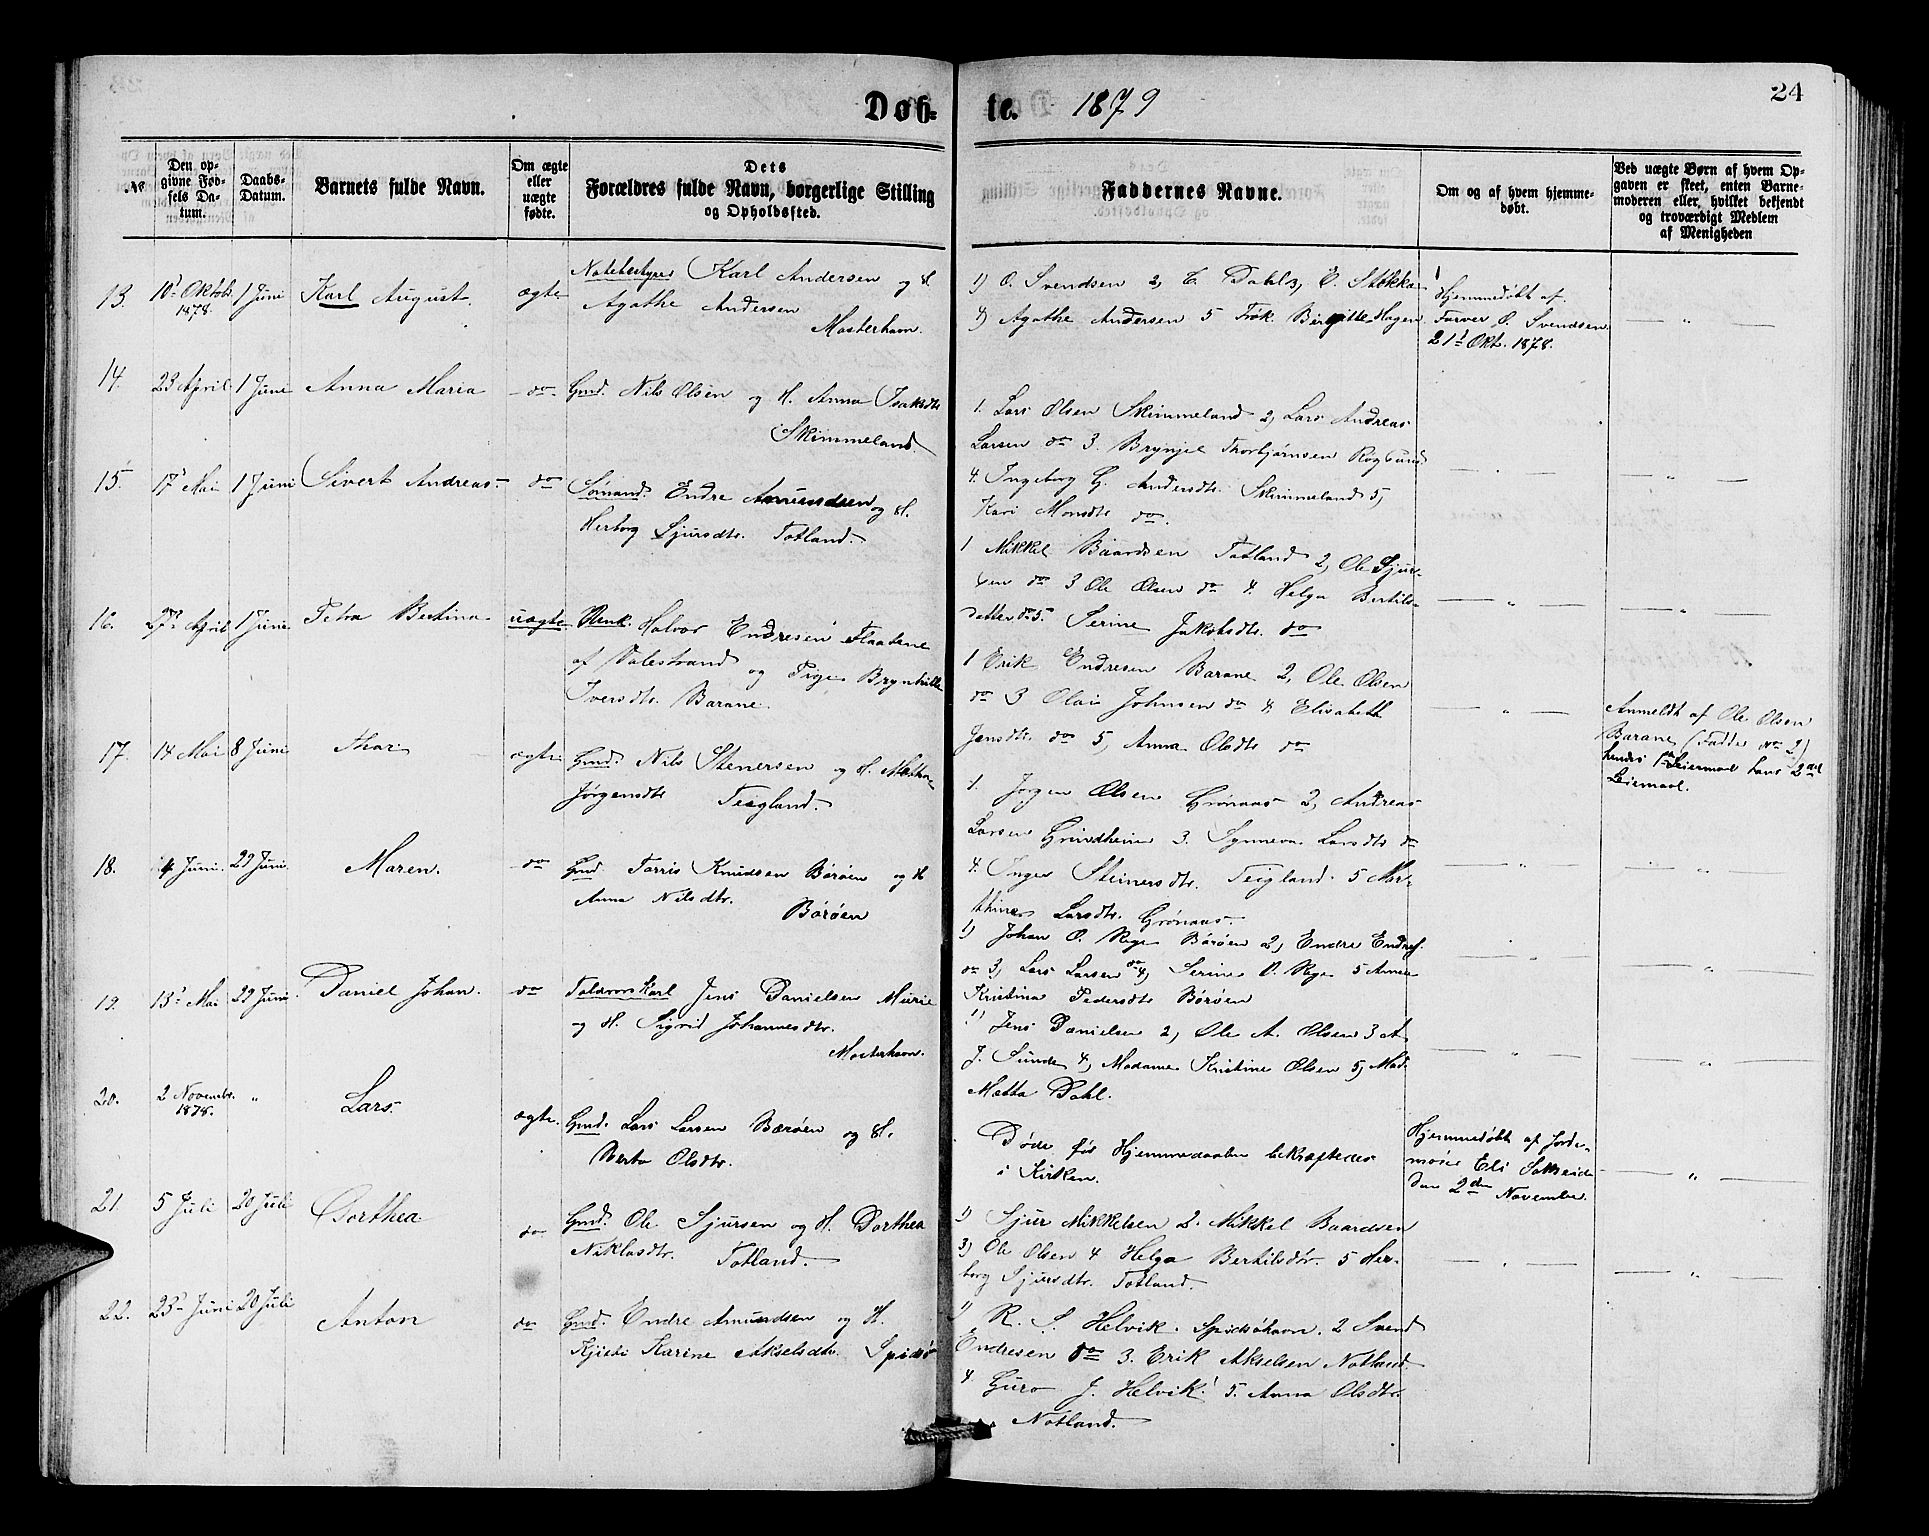 Døb-
te. 1879
24
No
Den op-
givne Fød-
sels Da-
tum.
Daabs-
Datum.
Barnets fulde Navn.
Om ægte
eller
uægte
fødte.
Dets
Forældres fulde Navn, borgerlige Stilling
og Opholdssted.
Faddernes Navne.
Om og af hvem hjemme-
døbt.
Ved uægte Børn af hvem Op-
gaven er skeet, enten Barne-
moderen eller, hvilket bekjendt
og troværdigt Medlem
af Menigheden
13. 10' Oktob. 1 Juni Karl August. ægte
1878.
Karl Andersen og H.
Agathe Andersen
Mosterhavn.
1) O. Svendsen 2, C. Dahl 3, E. Støkka
4) Agathe Andersen 5 Frøk. Birgitte Hagen
Hjemmedøbt af
Farver O. Svendsen
21' Okt. 1878.
14. 23 April 1 Juni Anna Maria do
Gmd. Nils Olsen og H. Anna Isaksdtr
Skimmeland.
1. Lars Olsen Skimmeland 2, Lars Andreas
Larsen do 3. Brynjel Thorbjørnsen Rogsund
4. Ingeborg G. Andersdtr. Skimmeland 5,
Kari Monsdtr do.
15. 17' Mai 1 Juni Sivert Andreas do
Sømand. Endre Amundsen og H.
Herborg Sjursdtr. Totland.
1 Mikkel Baardsen Totland 2, Ole Sjur-
sen do 3 Ole Olsen do 4. Helga Bertils-
datter do 5. Serine Jakobsdtr. do
16. 27' April 1 Juni Petra Bertina uægte
Halvor Endresen Flaatene
af Valestrand og Pige Brynhilde
Iversdtr. Barane.
1 Erik Endresen Barane 2, Ole Olsen
do 3 Olai Johnsen do 4. Elisabeth
Jensdtr. do 5, Anna Olsdtr do
Anmeldt af Ole Olsen
Barane (Fadder No 2)
hendes 1ste Leiermaal hans 2det
Leiermaal.
17. 14 Mai 8 Juni Thor ægte
Gmd. Nils Stenersen og H. Metha
Jørgensdtr Teigland.
1. Jørgen Olsen Grønaas 2, Andreas
Larsen Grindheim 3. Synneva Larsdtr do
4. Inger Steinersdtr. Teigland. 5 Mar-
thine Larsdtr. Grønaas.
18. 4 Juni 29 Juni Maren. do
Gmd. Torris Knudsen Børøen og H
Anna Nilsdtr. Børøen
1) Johan O. Røge Børøen 2, Endre Endres.
do 3, Lars Larsen do 4, Serine O. Røge 5 Anne
Kristina Pedersdtr Børøen
19. 13' Mai 29 Juni Daniel Johan. do
Jens Danielsen Murie
og H. Sigrid Johannesdtr.
Mosterhavn.
1) Jens Danielsen 2, Ole A. Olsen 3 A
J. Sunde 4, Madame Kristine Olsen 5, Mad.
Metta Dahl.
20. 2 Novembr. " Lars. ægte.
1878.
Gmd. Lars Larsen Bærøen og H.
Berta Olsdtr.
Døde før Hjemmedaaben bekræftedes
i Kirken.
Hjemmedøbt af Jorde-
moder Eli
den 2den November.
21. 5 Juli 20 Juli Dorthea do
Gmd. Ole Sjursen og H. Dorthea
Niklasdtr. Totland.
1) Sjur Mikkelsen 2. Mikkel Baardsen
3) Ole Olsen 4 Helga Bertilsdtr. 5 Her-
borg Sjursdtr. Totland.
22. 23' Juni 20 Juli Anton do
Gmd. Endre Amundsen og H.
Karine Akselsdtr. Spidsø
1) R. S. Helvik. Spidsøhavn. 2 Svend
Endresen do 3. Erik Akselsen Notland
4 Guro J. Helvik. 5. Anna Olsdtr
Notland.